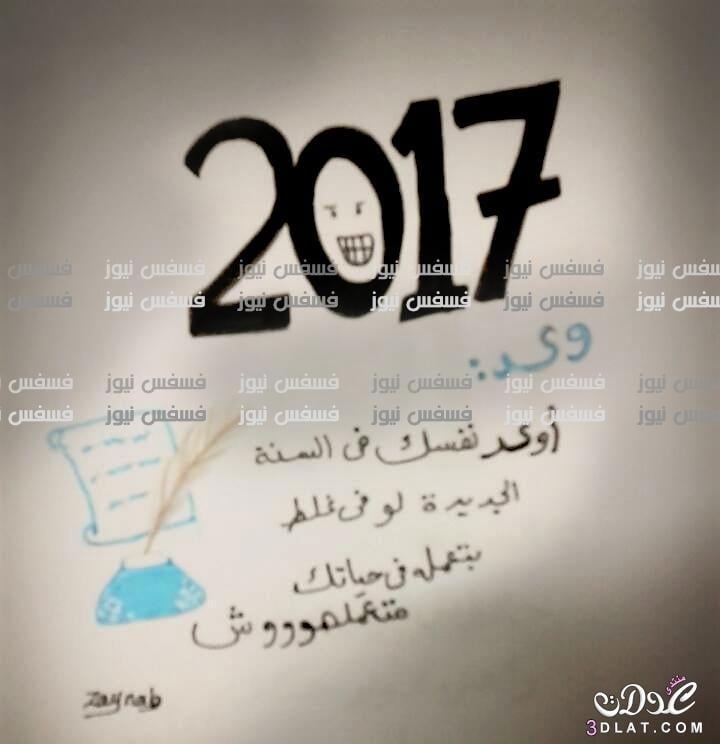 2017
وعد:
أوعد نفسك فى السنة
الجديدة لو فى غلط
بتعمله فى حياتك
متعملهوووش
zaynab
فسفس نيوز فسفس نيوز فسفس نيوز فسفس نيوز فسفس نيوز فسفس
فسفس نيوز فسفس نيوز فسفس نيوز فسفس نيوز فسفس نيوز فسفس
فسفس نيوز فسفس نيوز فسفس نيوز فسفس نيوز فسفس نيوز فسفس
فسفس نيوز فسفس نيوز فسفس نيوز فسفس نيوز فسفس نيوز فسفس
منتدى
عدلات
3DLAT.COM